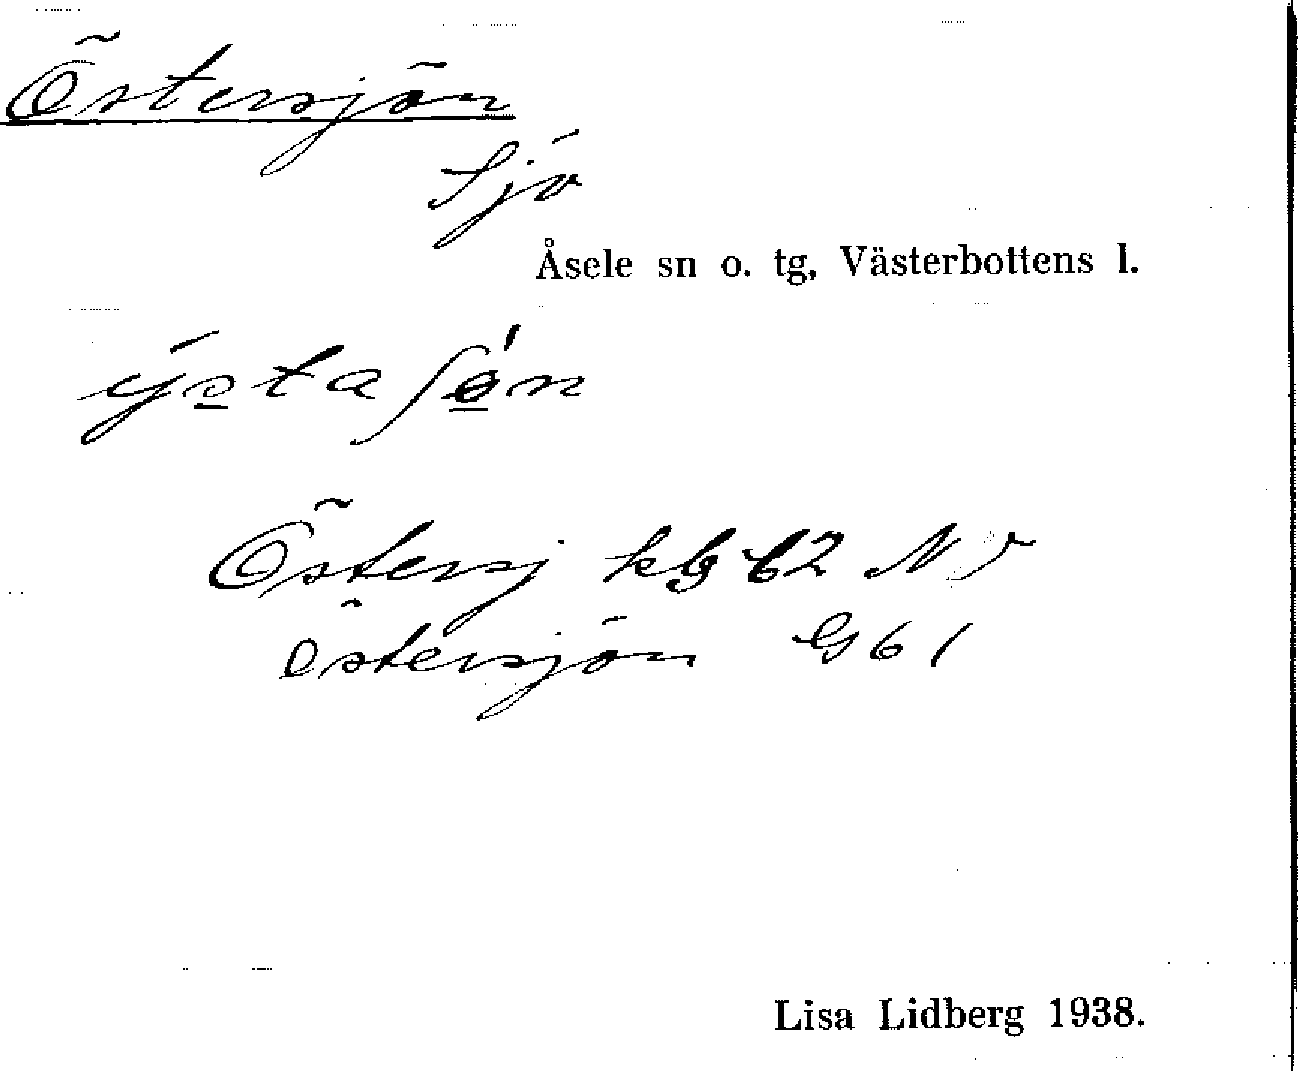 Östersjön
Sjö
Åsele sn o. tg, Västerbottens l.
Östersj
Östersjön G61
Lisa Lidberg 1938.